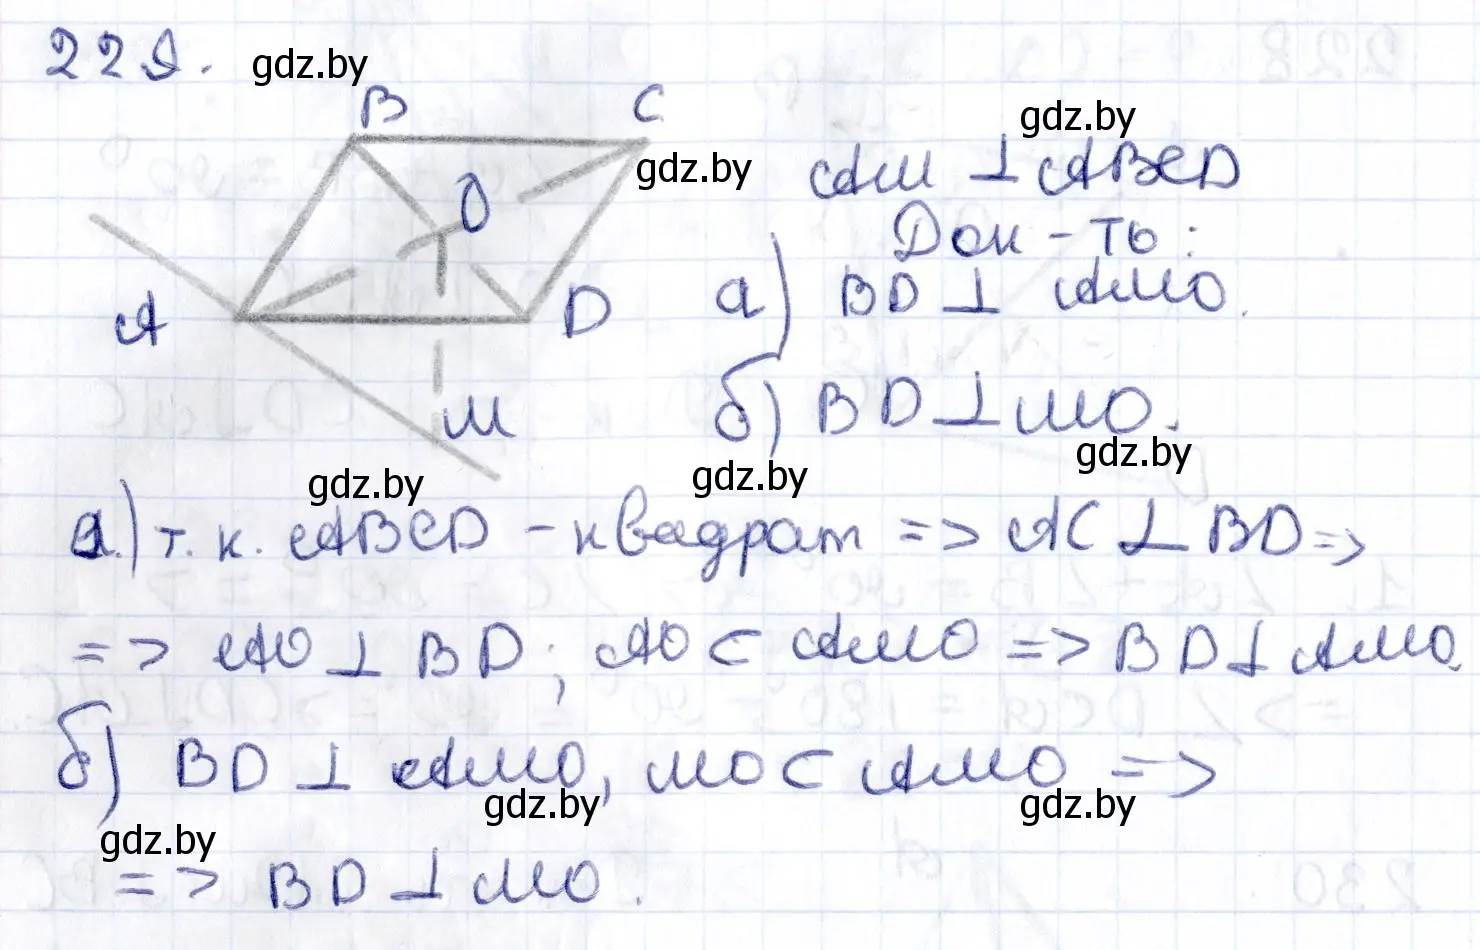 229.
gdz.by
B
C
gdz.by
gdz.by
AM ⊥ ABCD
O
Док-ть:
A
D
а) BD ⊥ AMO.
M
б) BD ⊥ MO.
gdz.by
gdz.by
gdz.by
а) т. к. ABCD - квадрат => AC ⊥ BD =>
=> AO ⊥ BD; AO ⊂ AMO => BD ⊥ AMO.
б) BD ⊥ AMO, MO ⊂ AMO =>
gdz.by
gdz.by
gdz.by
=> BD ⊥ MO.